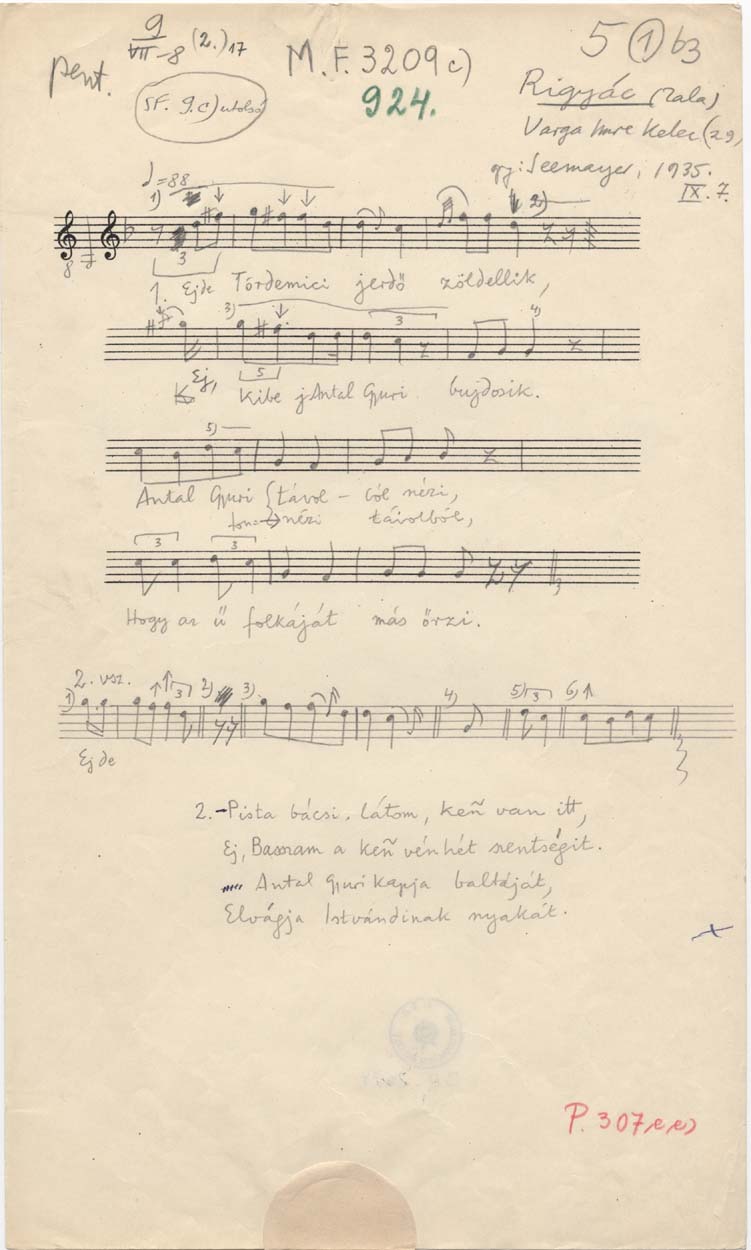 9
VII-8 (2.) 17
M.F. 3209 c)
5 ① b3
pent.
SF. 9.c) utolsó
924.
Rigyác (Zala)
Varga Imre Kelec (29)
gy: Seemayer, 1935.
IX. 7.
♩=88
1)
2)
8
3
1. Ejde Tördemici jerdő zöldellik,
3)
3
4)
5
Ej, Kibe j Antal Gyuri bujdosik.
5)
Antal Gyuri távol - ból nézi,
nézi távolból,
3 3
Hogy az ű folkáját más őrzi.
2. vsz.
1) 3 2) 3) 4) 5) 6)
Ej de
2. - Pista bácsi, látom, keñ van itt,
Ej, Basszam a keñ vénhét szentségit.
Antal Gyuri kapja baltáját,
Elvágja Istvándinak nyakát.
P. 307